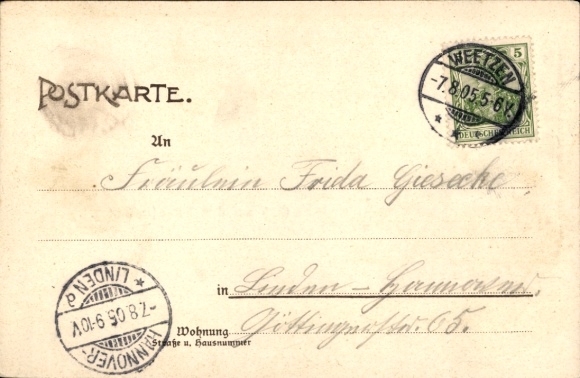 POSTKARTE.
WEETZEN
-7.8.05.5-6V.
5
DEUTSCHES REICH
An
Fräulein Frida Giesecke
in Linden - Hannover.
Wohnung Göttingerstr. 65.
Straße u. Hausnummer
HANNOVER-LINDEN
-7.8.05.9-10V